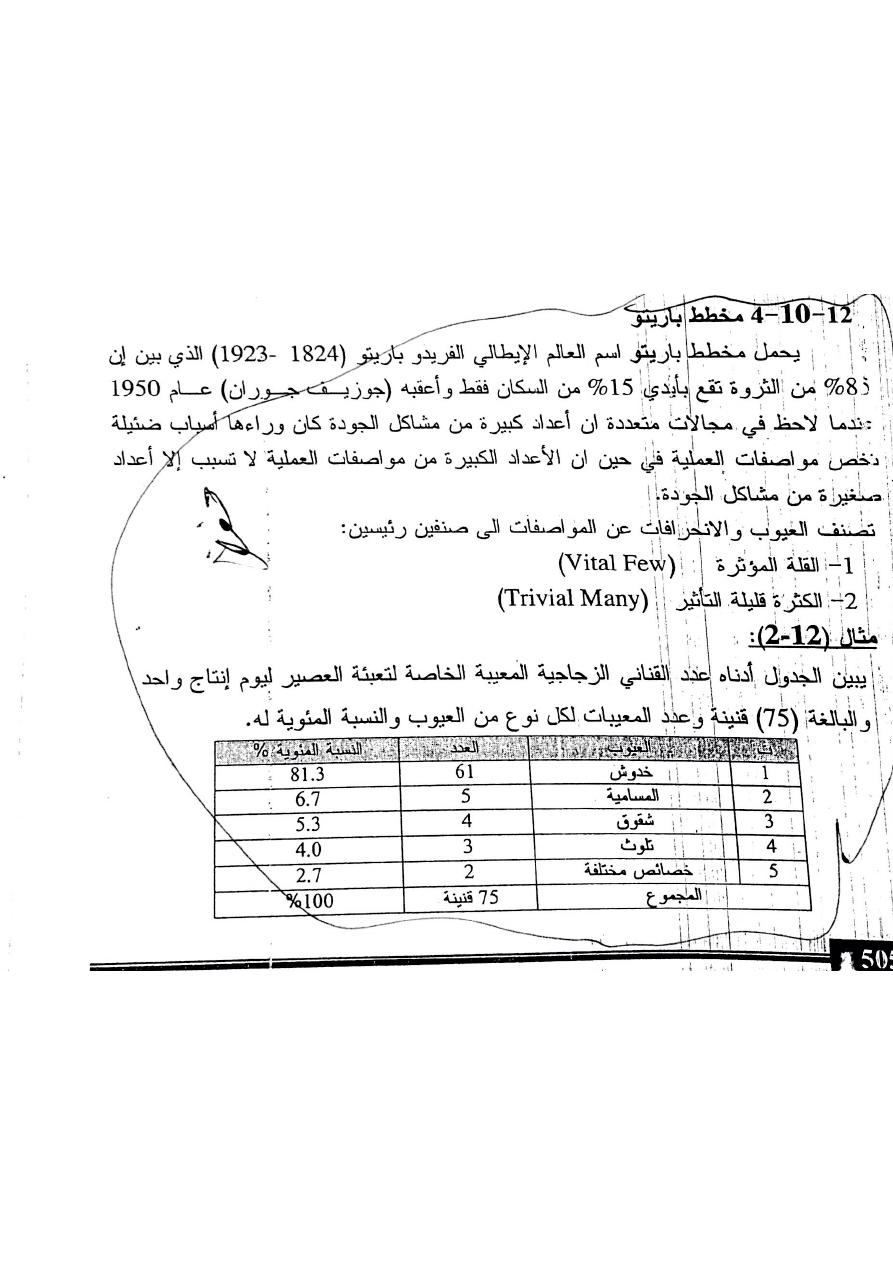 12-10-4 مخطط باريتو
يحمل مخطط باريتو اسم العالم الإيطالي الفريدو باريتو (1824 -1923) الذي بين إن
85% من الثروة تقع بأيدي 15% من السكان فقط وأعقبه (جوزيف جوران) عام 1950
عندما لاحظ في مجالات متعددة ان أعداد كبيرة من مشاكل الجودة كان وراءها أسباب ضئيلة
تخص مواصفات العملية في حين ان الأعداد الكبيرة من مواصفات العملية لا تسبب إلا أعداد
صغيرة من مشاكل الجودة.
تصنف العيوب والانحرافات عن المواصفات الى صنفين رئيسين:
1- القلة المؤثرة (Vital Few)
2- الكثرة قليلة التأثير (Trivial Many)
مثال (12-2):
يبين الجدول أدناه عدد القناني الزجاجية المعيبة الخاصة لتعبئة العصير ليوم إنتاج واحد
والبالغة (75) قنينة وعدد المعيبات لكل نوع من العيوب والنسبة المئوية له.
ت العيوب العدد النسبة المئوية %
1 خدوش 61 81.3
2 المسامية 5 6.7
3 شقوق 4 5.3
4 تلوث 3 4.0
5 خصائص مختلفة 2 2.7
المجموع 75 قنينة 100%
505